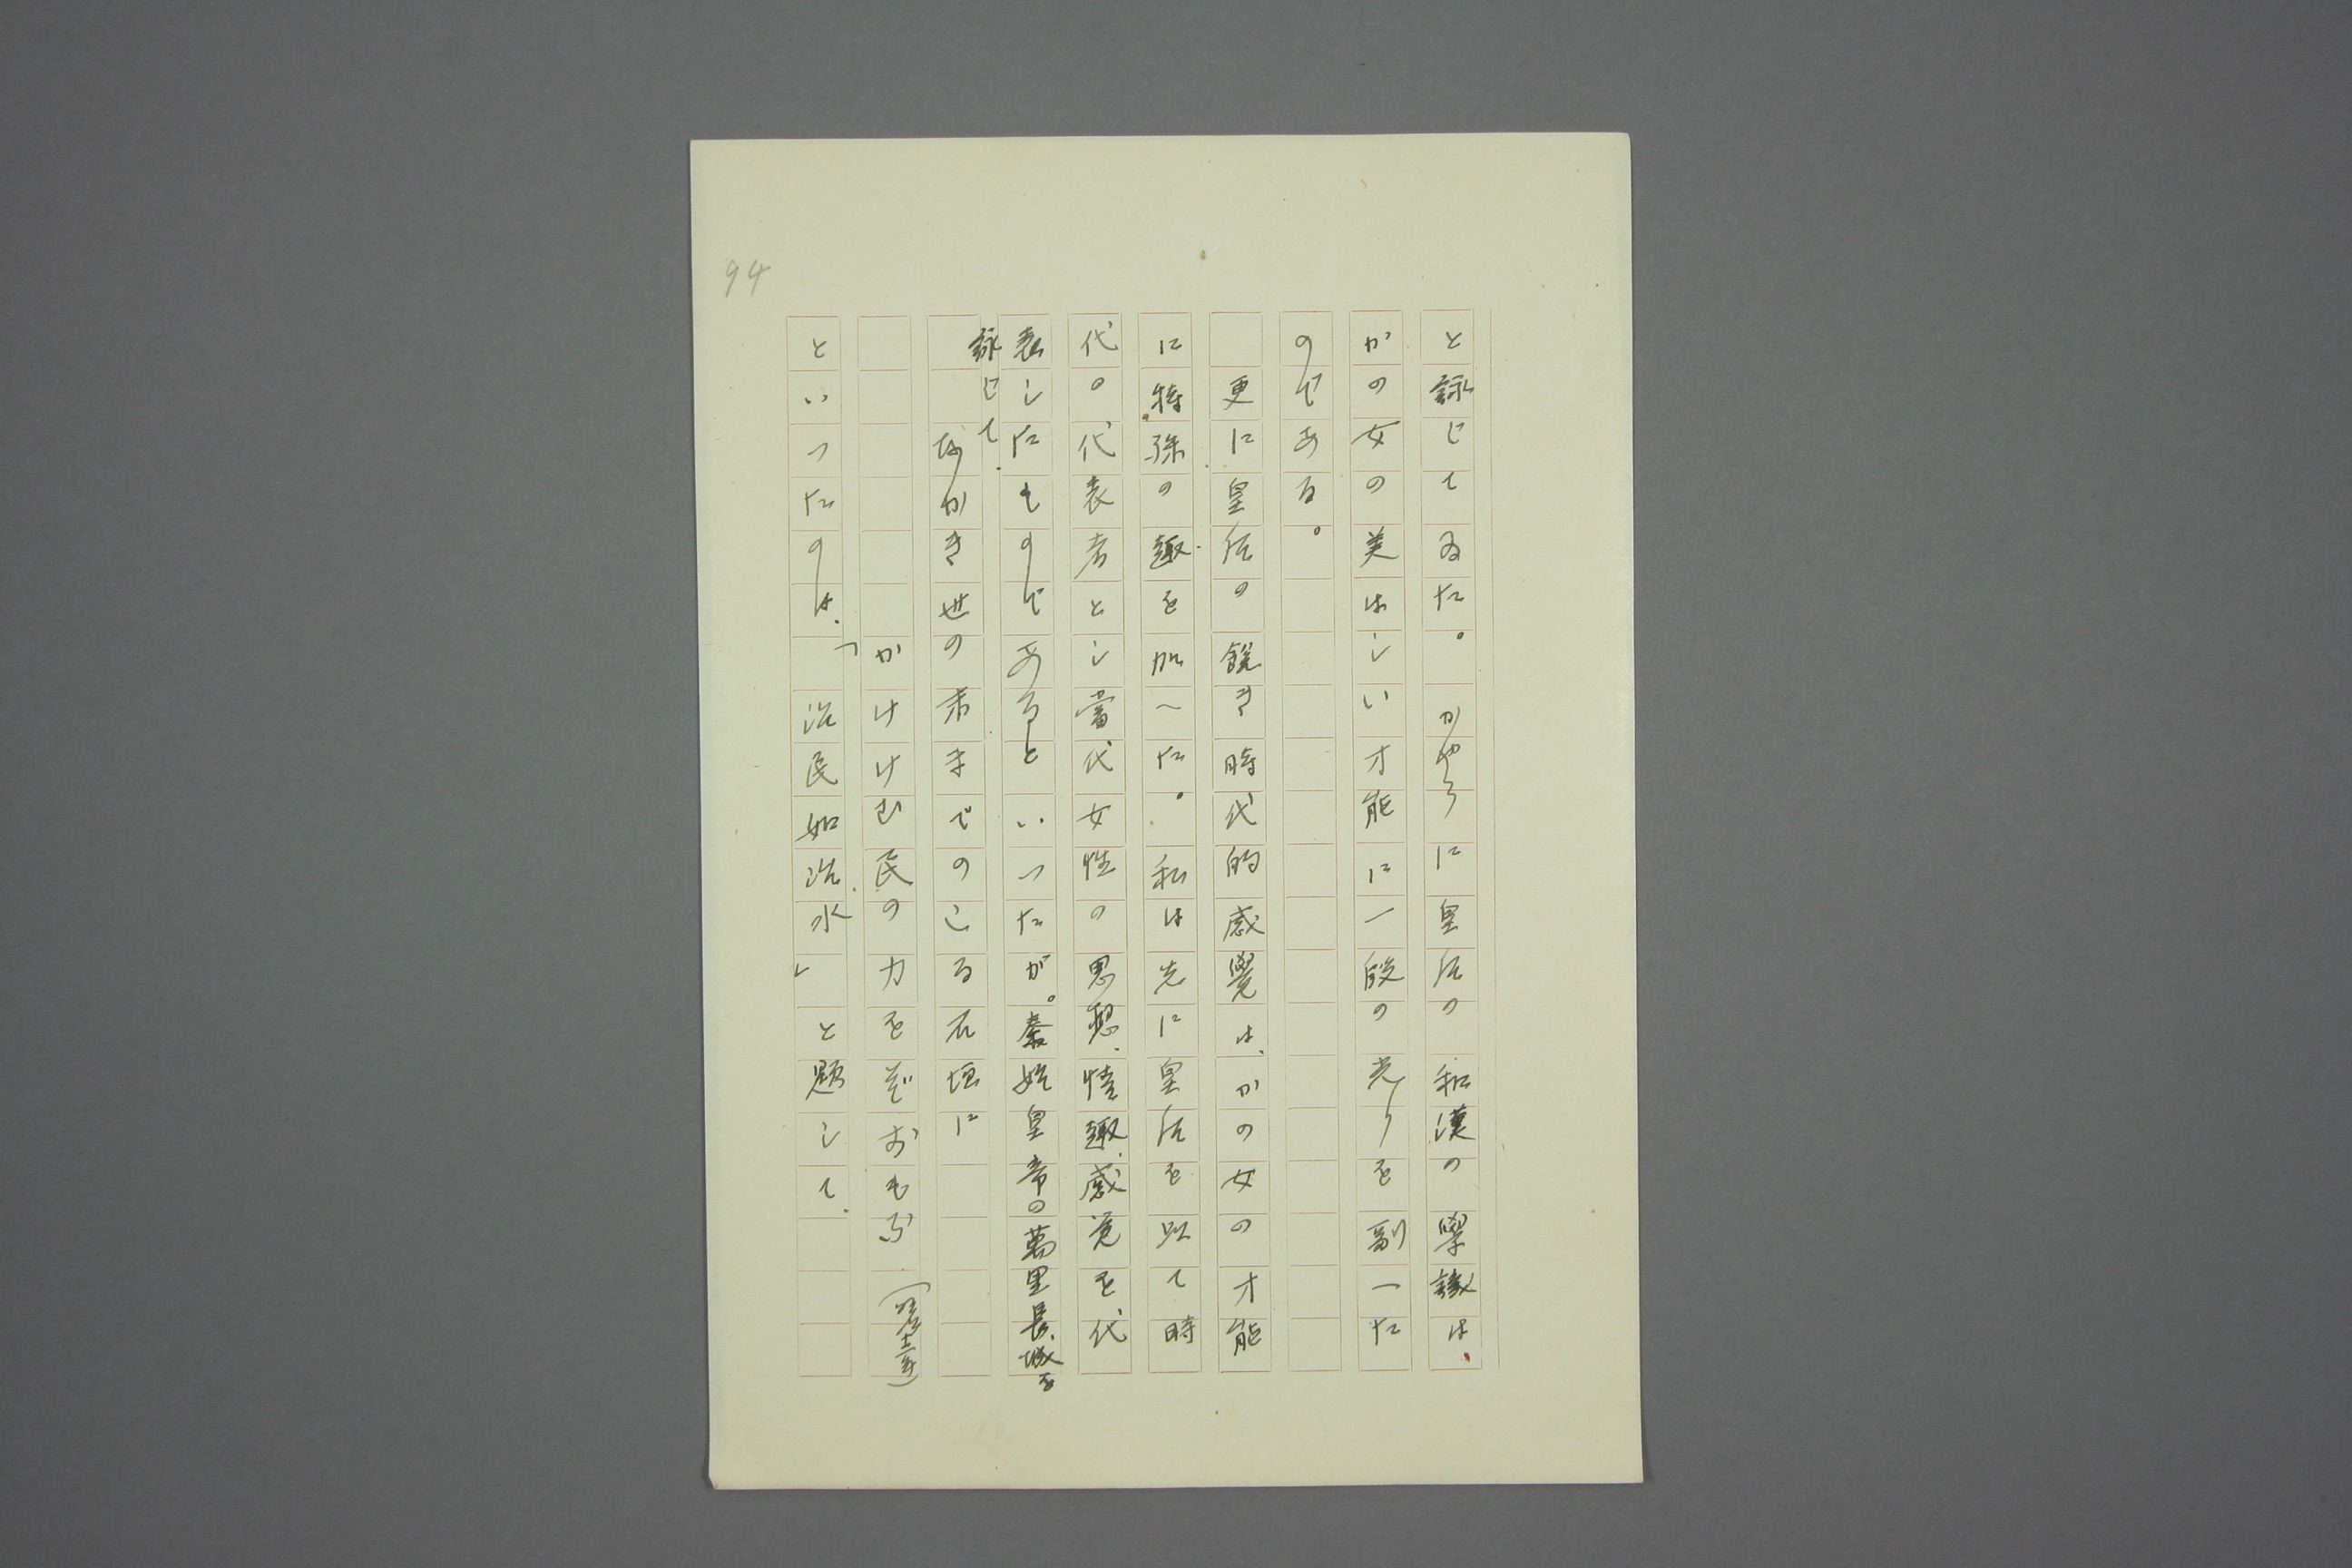 94
と詠じてゐた。かやうに皇后の和漢の學識は、
かの女の美はしい才能に一段の光りを副へた
のである。
更に皇后の鋭き時代的感覺は、かの女の才能
に特殊の趣を加へた。私は先に皇后を以て時
代の代表者とし當代女性の思想、情趣、感覚を代
表したものであるといつたが。秦始皇帝の萬里長城を
詠じて、
なかき世の末までのこる石垣に
かけけむ民の力をぞおもふ（明治十二年）
といつたのは、「治民如治水」と題して、